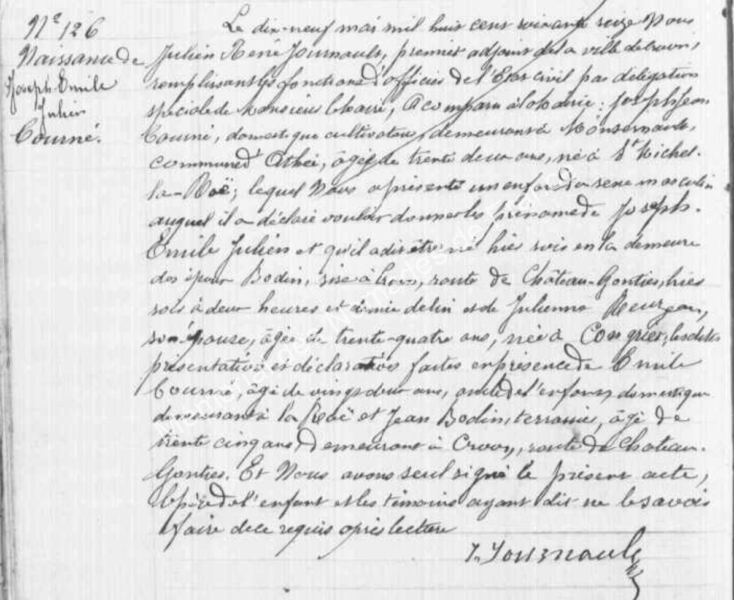 N° 126
Naissance de
Joseph Emile
Julien
Tourné.
Le dix-neuf mai mil huit cent soixante seize Nous
Julien René Journault, premier adjoint de la ville de
remplissant les fonctions d'officier de l'Etat civil par délégation
spéciale de Monsieur le Maire, a comparu à la Mairie: Joseph Jean
Tourné, domestique cultivateur, demeurant à
commune d'Athée, âgé de trente deux ans, né à St Michel-
la-Roë; lequel Nous a présenté un enfant du sexe masculin
auquel il a déclaré vouloir donner les prénoms de Joseph-
Emile Julien et qu'il a dit être né hier soir en la demeure
des époux Bodin, sise à Craon, route de Château-Gontier, hier
soir à deux heures et demie de lui et de Julienne
son épouse, âgée de trente-quatre ans, née à Congrier; lesdites
présentation et déclaration faites en présence de Emile
Tourné, âgé de vingt deux ans, oncle de l'enfant, domestique
demeurant à la Roë et Jean Bodin, terrassier, âgé de
trente cinq ans, demeurant à Craon, route de Château-
Gontier. Et Nous avons seul signé le présent acte,
le père de l'enfant et les témoins ayant dit ne le savoir
faire de ce requis après lecture
J. Journault